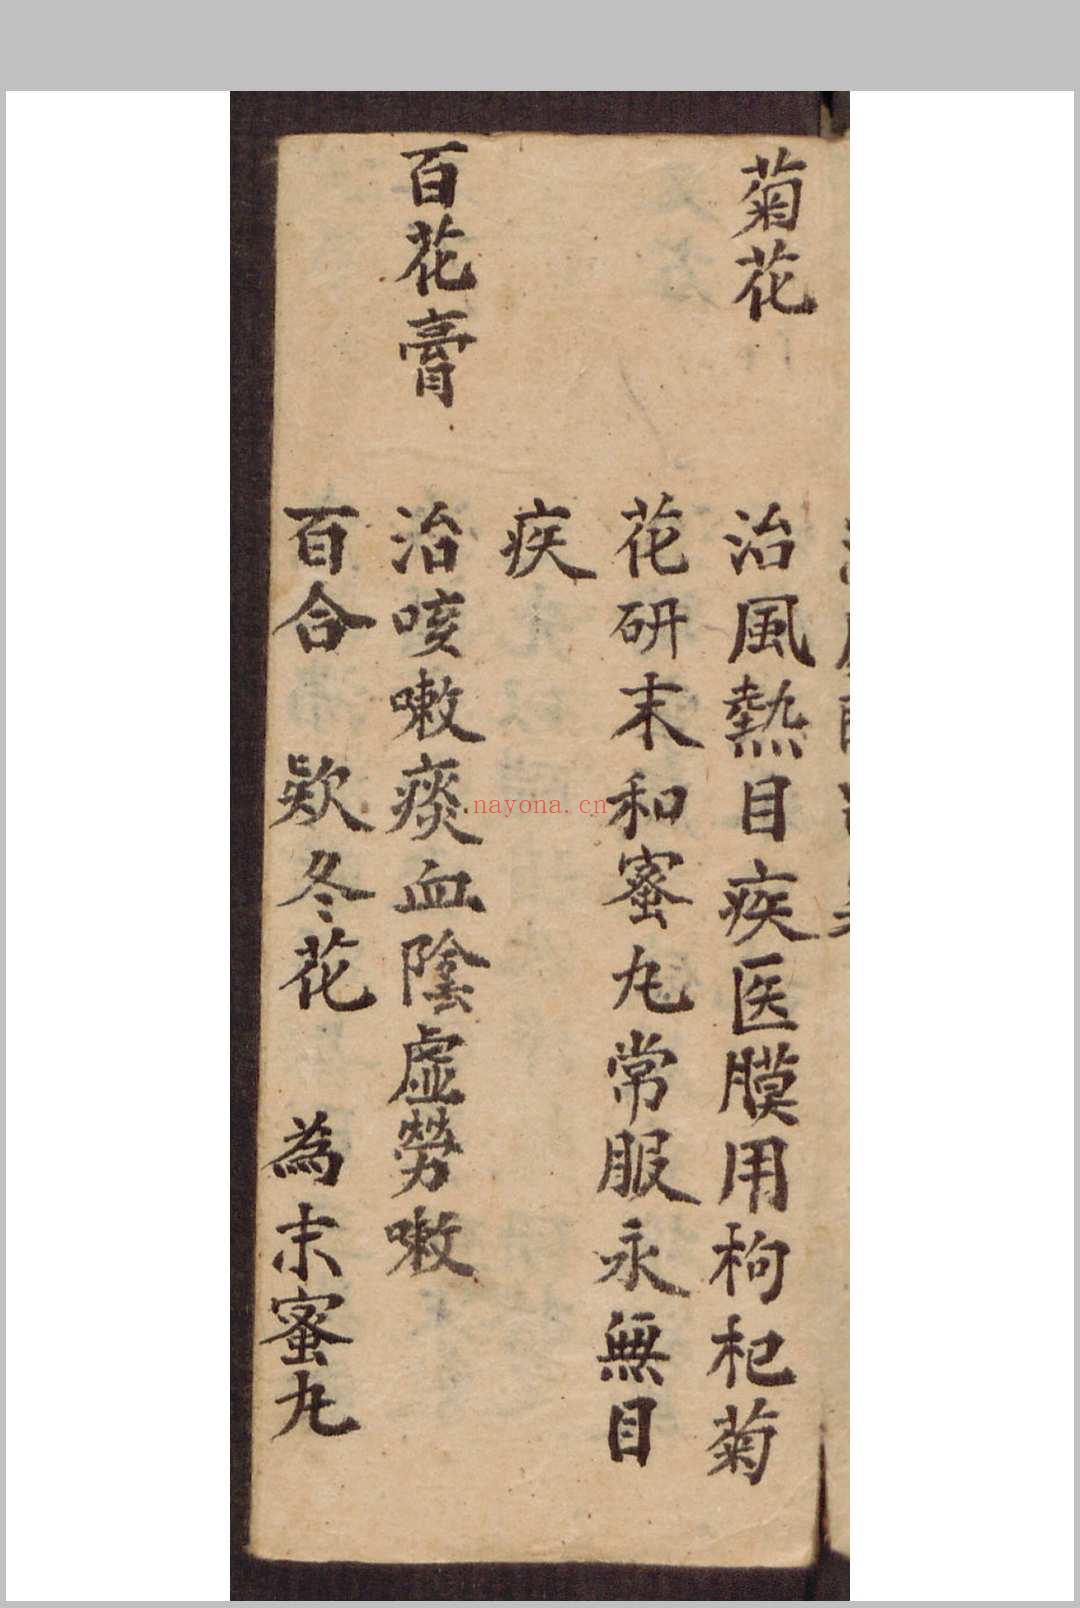 菊花　治風熱目疾医膜用枸杞菊
花研末和蜜丸常服永無目
疾
百花膏　治咳嗽痰血陰虛勞嗽
百合　欵冬花　為末蜜丸
nayona.cn